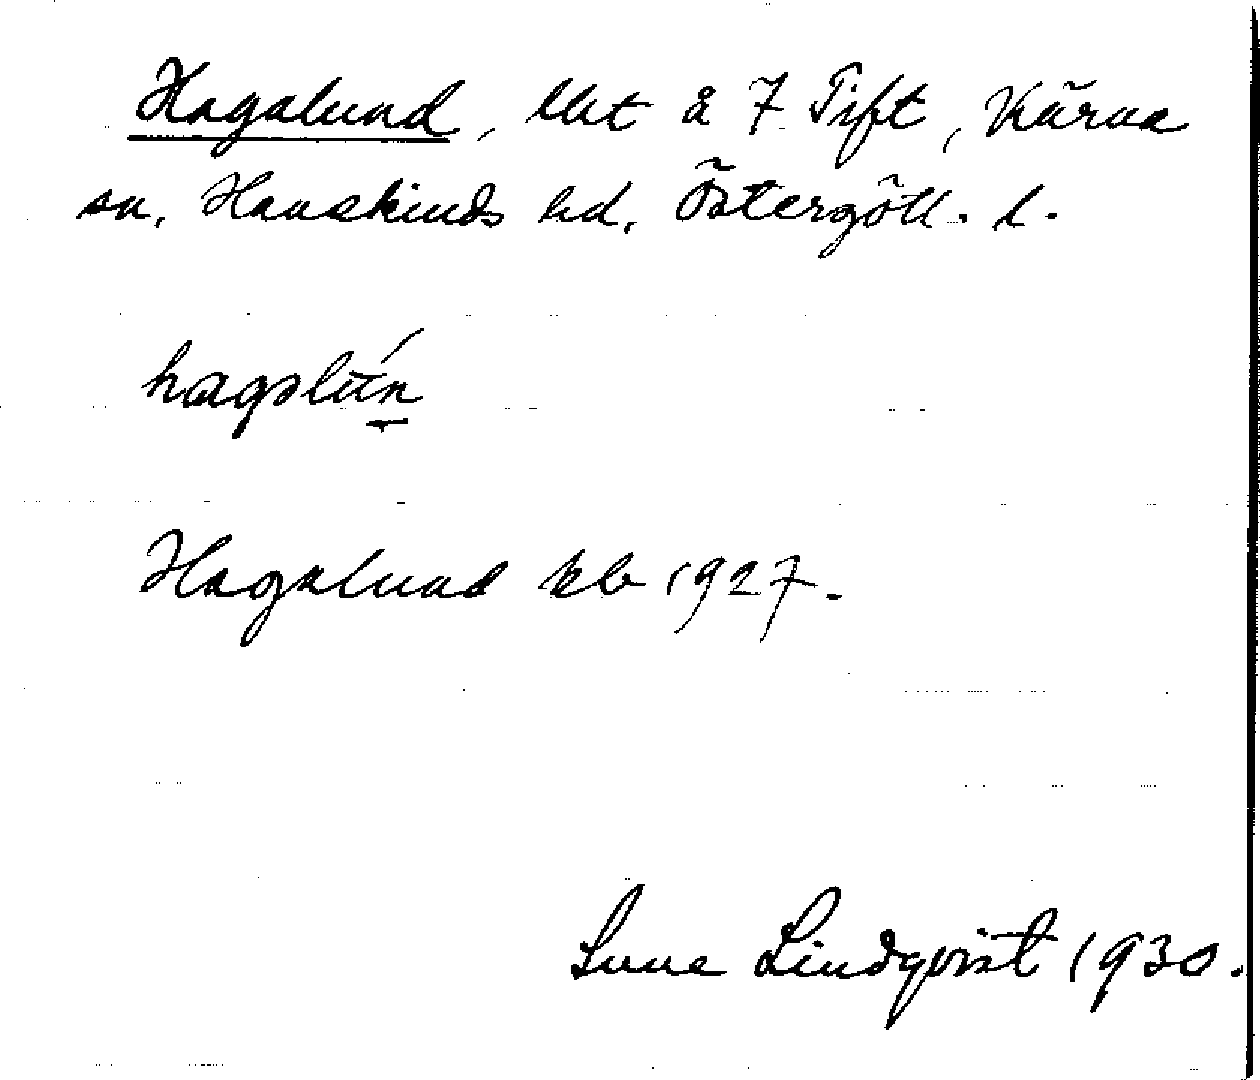 Hagalund, lht å 7 Tift, Kärna
sn. Hanekinds hd. Östergötl. l.
hagəlún
Hagalund kb 1927.
Sune Lindqvist 1930.